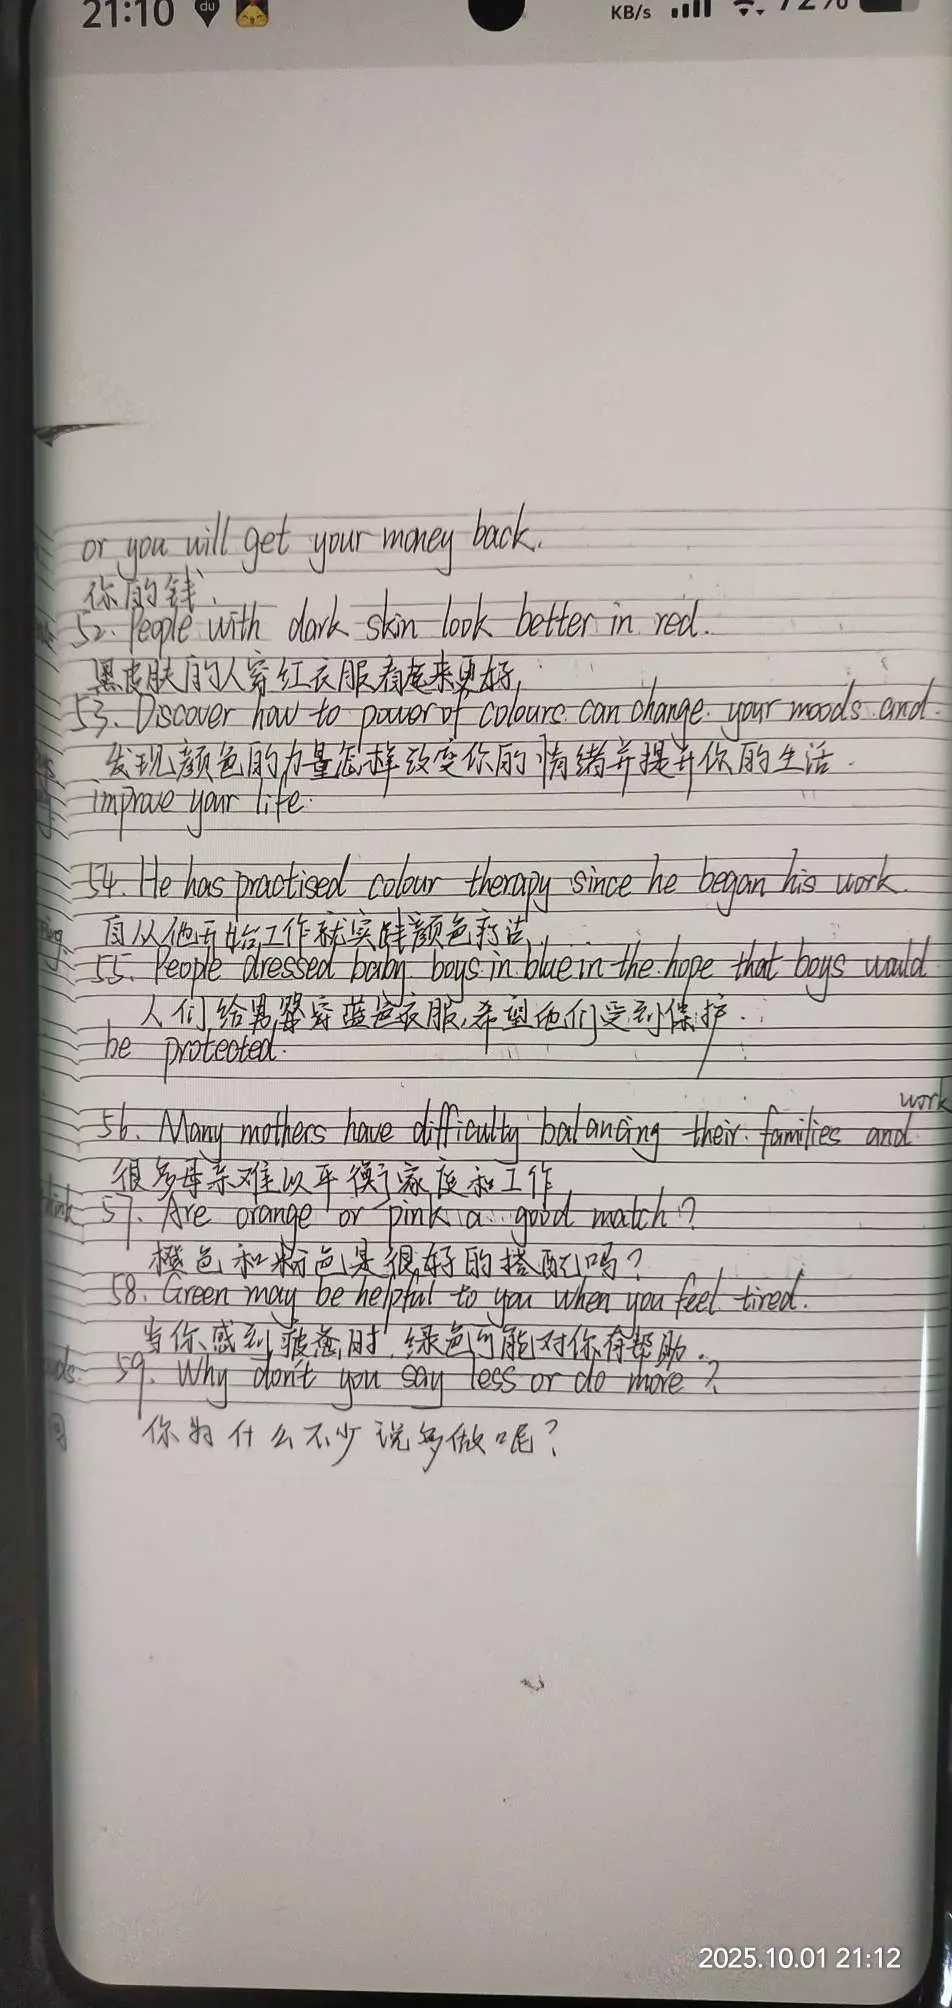 21:10 du KB/s 72%
or you will get your money back.
你的钱.
52. People with dark skin look better in red.
黑皮肤的人穿红衣服看起来更好,
53. Discover how to power of colours can change your moods and
发现颜色的力量怎样改变你的情绪并提升你的生活.
improve your life.
54. He has practised colour therapy since he began his work.
自从他开始工作就实践颜色疗法.
55. People dressed baby boys in blue in the hope that boys would
人们给男婴穿蓝色衣服,希望他们受到保护.
be protected.
work
56. Many mothers have difficulty balancing their families and
很多母亲难以平衡家庭和工作
think
57. Are orange or pink a good match?
橙色和粉色是很好的搭配吗?
58. Green may be helpful to you when you feel tired.
当你感到疲惫时,绿色可能对你有帮助.
59. Why don't you say less or do more?
你为什么不少说多做呢?
2025.10.01 21:12